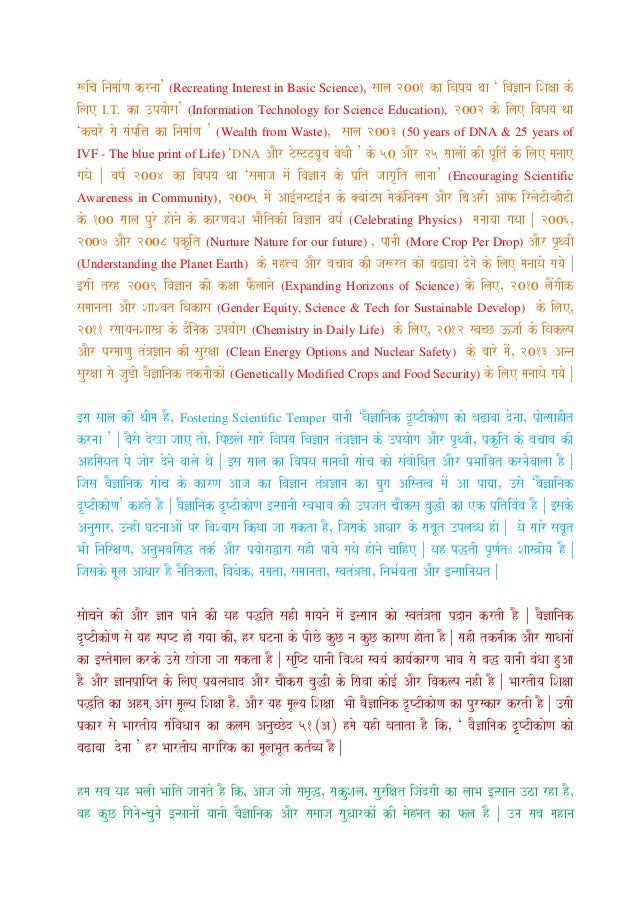 रूचि निर्माण करना' (Recreating Interest in Basic Science), साल २००१ का विषय था ' विज्ञान शिक्षा के
लिए I.T. का उपयोग' (Information Technology for Science Education), २००२ के लिए विषय था
'कचरे से संपत्ति का निर्माण ' (Wealth from Waste), साल २००३ (50 years of DNA & 25 years of
IVF - The blue print of Life) 'DNA और टेस्टट्यूब बेबी ' के ५० और २५ सालों की पूर्ति के लिए मनाए
गये | वर्ष २००४ का विषय था 'समाज में विज्ञान के प्रति जागृति लाना' (Encouraging Scientific
Awareness in Community), २००५ में आईनस्टाईन के क्वांटम मेकॅनिक्स और थिअरी ऑफ रिलेटीव्हीटी
के १०० साल पुरे होने के कारणवश भौतिकी विज्ञान वर्ष (Celebrating Physics) मनाया गया | २००६,
२००७ और २००८ प्रकृति (Nurture Nature for our future) , पानी (More Crop Per Drop) और पृथ्वी
(Understanding the Planet Earth) के महत्त्व और बचाव की जरूरत को बढावा देने के लिए मनाये गये |
इसी तरह २००९ विज्ञान की कक्षा फैलाने (Expanding Horizons of Science) के लिए, २०१० लैंगीक
समानता और शाश्वत विकास (Gender Equity, Science & Tech for Sustainable Develop) के लिए,
२०११ रसायनशास्त्र के दैनिक उपयोग (Chemistry in Daily Life) के लिए, २०१२ स्वच्छ ऊर्जा के विकल्प
और परमाणु तंत्रज्ञान की सुरक्षा (Clean Energy Options and Nuclear Safety) के बारे में, २०१३ अन्न
सुरक्षा से जुडी वैज्ञानिक तकनीकों (Genetically Modified Crops and Food Security) के लिए मनाये गये |
इस साल की थीम है, Fostering Scientific Temper यानी 'वैज्ञानिक दृष्टीकोण को बढावा देना, प्रोत्साहीत
करना ' | वैसे देखा जाए तो, पिछले सारे विषय विज्ञान तंत्रज्ञान के उपयोग और पृथ्वी, प्रकृति के बचाव की
अहमियत पे जोर देने वाले थे | इस साल का विषय मानवी सोच को संबोधित और प्रभावित करनेवाला है |
जिस वैज्ञानिक सोच के कारण आज का विज्ञान तंत्रज्ञान का युग अस्तित्व में आ पाया, उसे 'वैज्ञानिक
दृष्टीकोण' कहते है | वैज्ञानिक दृष्टीकोण इन्सानी स्वभाव की उपजत चौकस बुद्धी का एक प्रतिबिंब है | इसके
अनुसार, उन्ही घटनाओं पर विश्वास किया जा सकता है, जिसके आधार के सबूत उपलब्ध हो | ये सारे सबूत
भी निरिक्षण, अनुभवसिद्ध तर्क और प्रयोगद्वारा सही पाये गये होने चाहिए | यह पद्धती पूर्णतः शास्त्रीय है |
जिसके मूल आधार है नैतिकता, विवेक, नम्रता, समानता, स्वतंत्रता, निर्भयता और इन्सानियत |
सोचने की और ज्ञान पाने की यह पद्धति सही मायने में इन्सान को स्वतंत्रता प्रदान करती है | वैज्ञानिक
दृष्टीकोण से यह स्पष्ट हो गया की, हर घटना के पीछे कुछ न कुछ कारण होता है | सही तकनीक और साधनों
का इस्तेमाल करके उसे खोजा जा सकता है | सृष्टि यानी विश्व स्वयं कार्यकारण भाव से बद्ध यानी बंधा हुआ
है और ज्ञानप्राप्ति के लिए प्रयत्नवाद और चौकस बुद्धी के सिवा कोई और विकल्प नही है | भारतीय शिक्षा
पद्धति का अहम् अंग मूल्य शिक्षा है, और यह मूल्य शिक्षा भी वैज्ञानिक दृष्टीकोण का पुरस्कार करती है | उसी
प्रकार से भारतीय संविधान का कलम अनुच्छेद ५१ (अ) हमे यही बताता है कि, ' वैज्ञानिक दृष्टीकोण को
बढावा देना ' हर भारतीय नागरिक का मूलभूत कर्तव्य है |
हम सब यह भली भांति जानते है कि, आज जो समृद्ध, सकुशल, सुरक्षित जिंदगी का लाभ इन्सान उठा रहा है,
वह कुछ गिने-चुने इन्सानों यानी वैज्ञानिक और समाज सुधारकों की मेहनत का फल है | उन सब महान